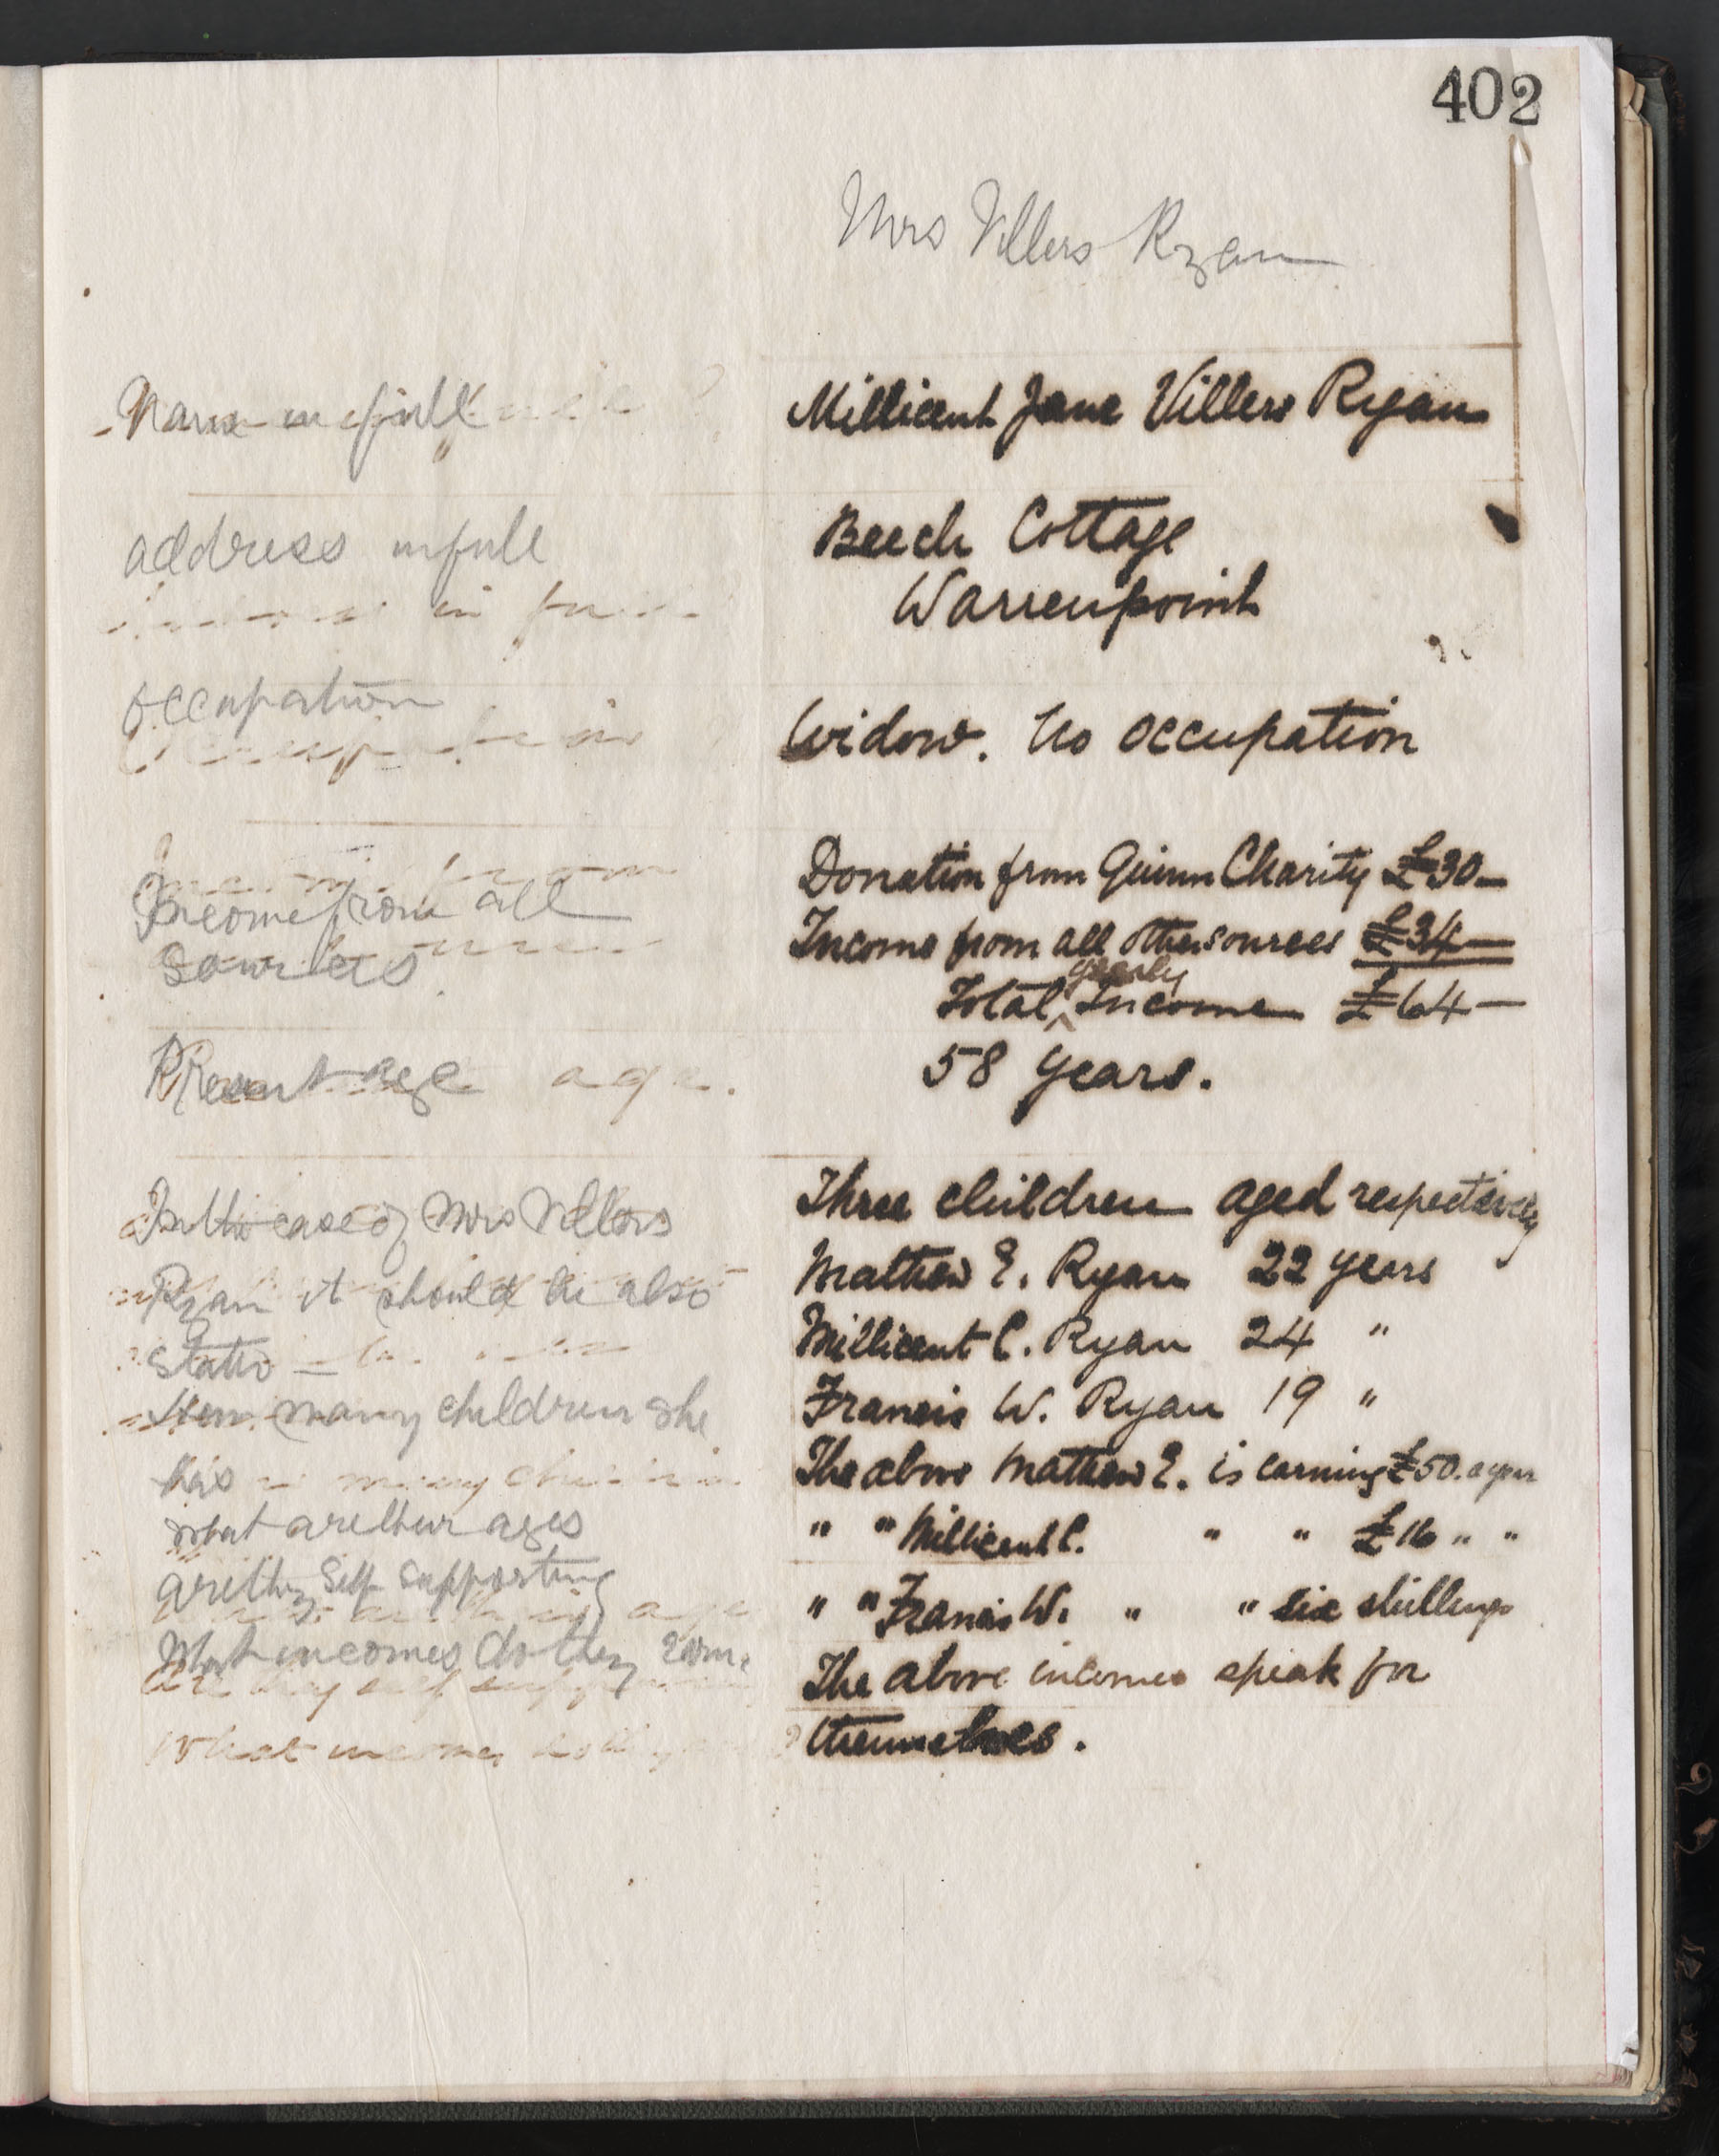 402
Mrs Villers Ryan
Name in full
Millicent Jane Villers Ryan
address in full
Beech Cottage
Warrenpoint
in full
occupation
Occupation
Widow. No occupation
Income from
Income from all
Sources
Donation from Quinn Charity £30—
Income from all other sources £34—
Total yearly Income £64—
Present age
age.
58 years.
In the case of Mrs Villers
Ryan it should be also
State —
How many children she
has
many children
What are their ages
are they Self Supporting
What incomes do they earn
are they self supporting
What incomes do they
Three children aged respectively
Mathew E. Ryan 22 years
Millicent C. Ryan 24 "
Francis W. Ryan 19 "
The above Mathew E. is earning £50. a year
" " Millicent C. " " £16 " "
" " Francis W. " " six shillings
The above incomes speak for
themselves.